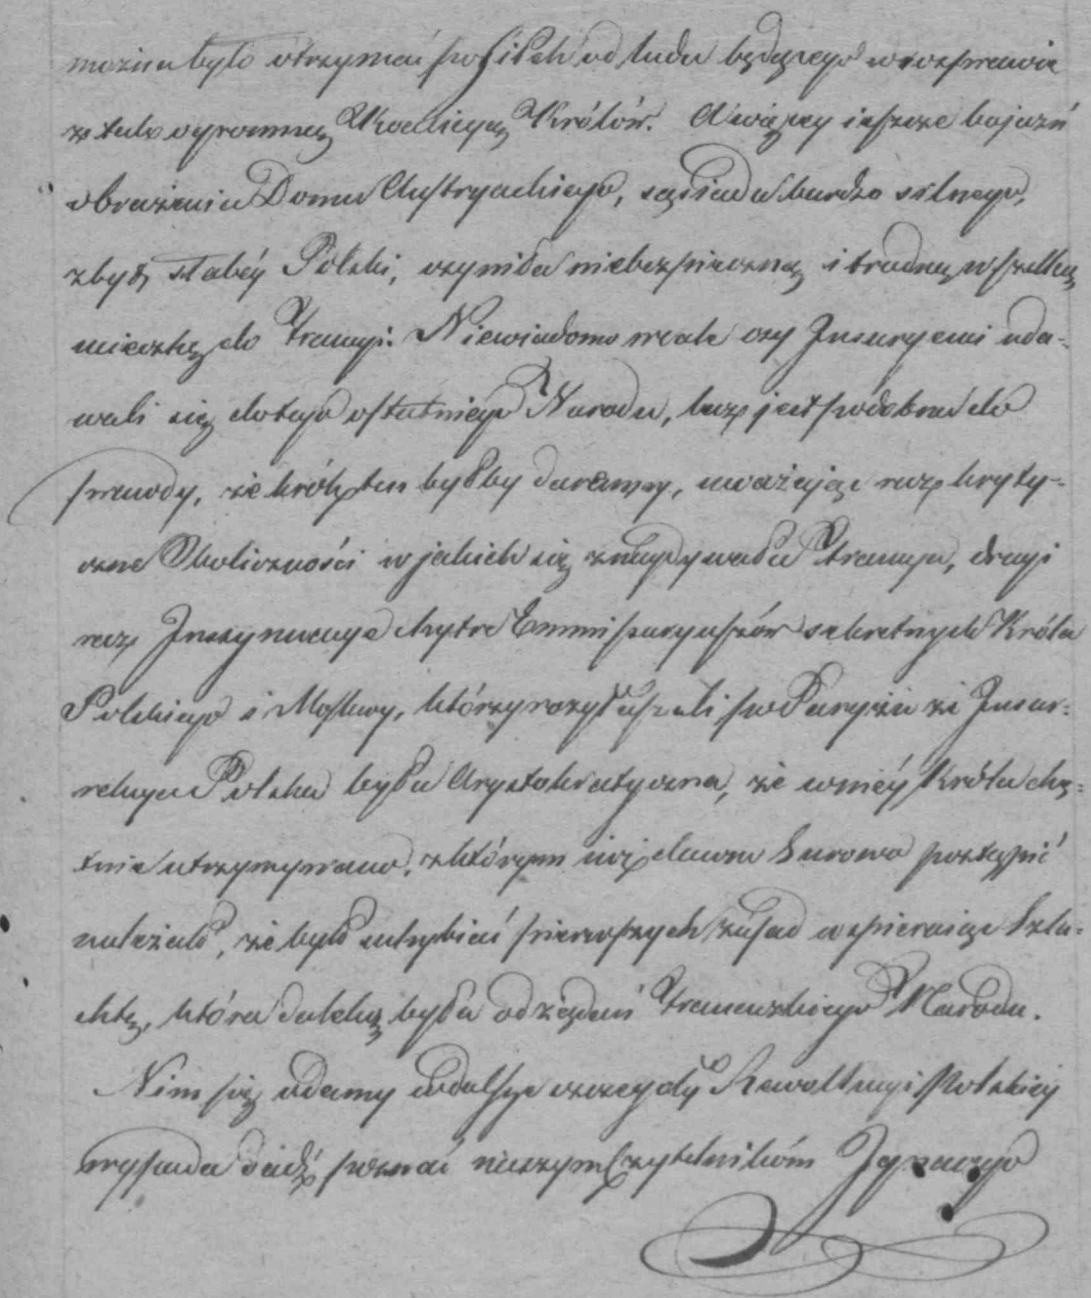 można było otrzymać posiłek od ludu będącego w rozprawie
z tak ogromną Koalicyą Królów. A więcey ieszcze bojaźń
obrażenia Domu Austryackiego, sąsiada bardzo silnego,
zbyt słabéy Polski, czyniła niebezpieczną i trudną wszelką
ucieczkę do Francyi. Niewiadomo wcale czy Insurgenci uda-
wali się do tego ostatniego Narodu, lecz jest podobne do
prawdy, że krok ten byłby daremny, uważając raz kryty-
czne Okoliczności w jakich się znaydywała Francya, drugi
raz Insynuacye chytre Emmissaryuszów sekretnych Króla
Polskiego i Moskwy, którzy rozgłaszali po Paryżu że Insur-
rekcya Polska była Arystokratyczna, że w niéy Króla chę-
tnie utrzymywano, z którym iuż dawno surowo postąpić
należało, że było uchybiać pierwszych zasad wspieraiąc Szla-
chtę, która daleką była od żądań Francuzkiego Narodu.
Nim się udamy w dalsze szczegóły Rewolucyi Polskiéy
wypada dadź poznać naszym Czytelnikom Ignacego